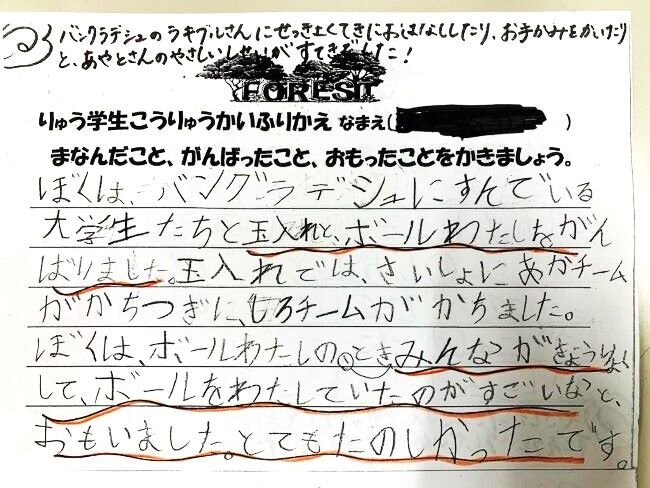 バングラデシュのラキブルさんにせっきょくてきにおはなししたり、お手がみをかいたり
と、あやとさんのやさしいしせいがすてきでした！
FOREST
りゅう学生こうりゅうかいふりかえ なまえ( )
まなんだこと、がんばったこと、おもったことをかきましょう。
ぼくは、バングラデシュにすんでいる
大学生たちと玉入れと、ボールわたしをがん
ばりました。玉入れでは、さいしょにあかチーム
がかちつぎに、しろチームがかちました。
ぼくは、ボールわたしの、ときみんながきょうりょく
して、ボールをわたしていたのがすごいなと、
おもいました。とてもたのしかったです。